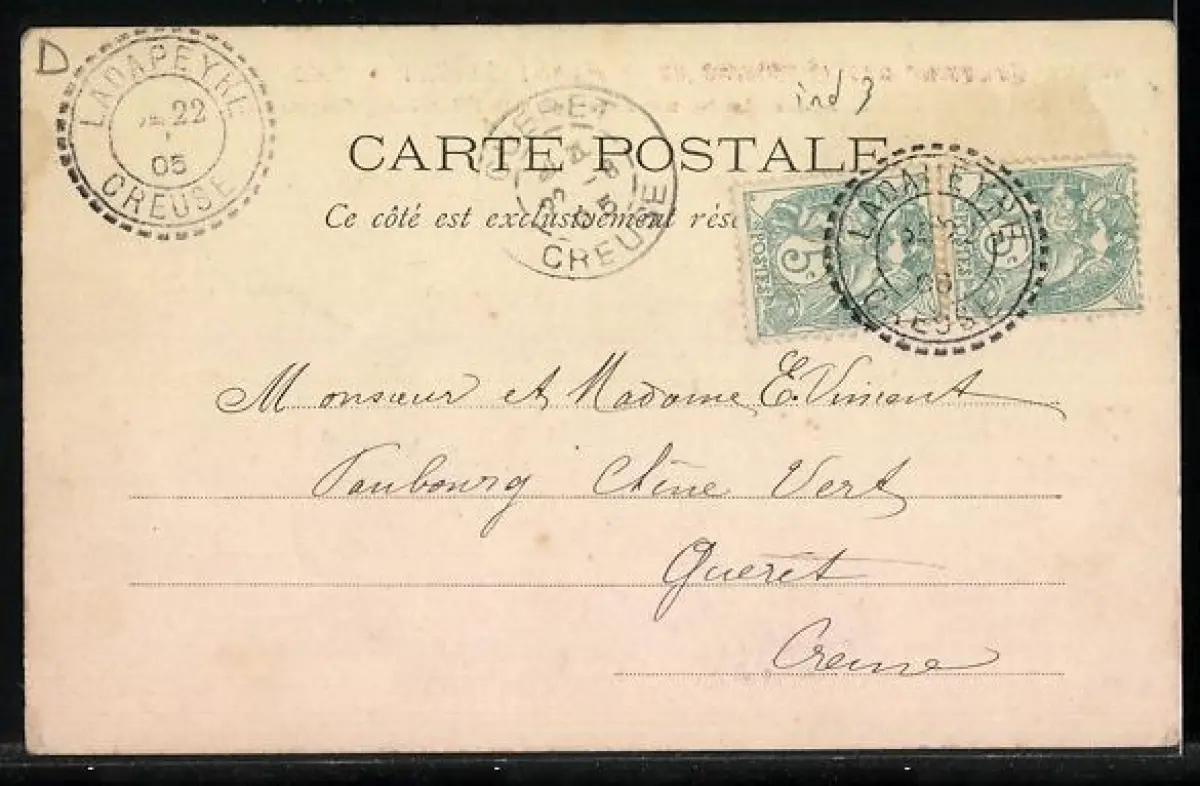 D
LADAPEYRE
22
05
CREUSE
GUERET
CREUSE
ind 3
CARTE POSTALE
Ce côté est exclusivement rés
5c
POSTES
LADAPEYRE
CREUSE
POSTES
5c
Monsieur et Madame E. Vincent
Faubourg Chêne Vert
Guerêt
Creuse